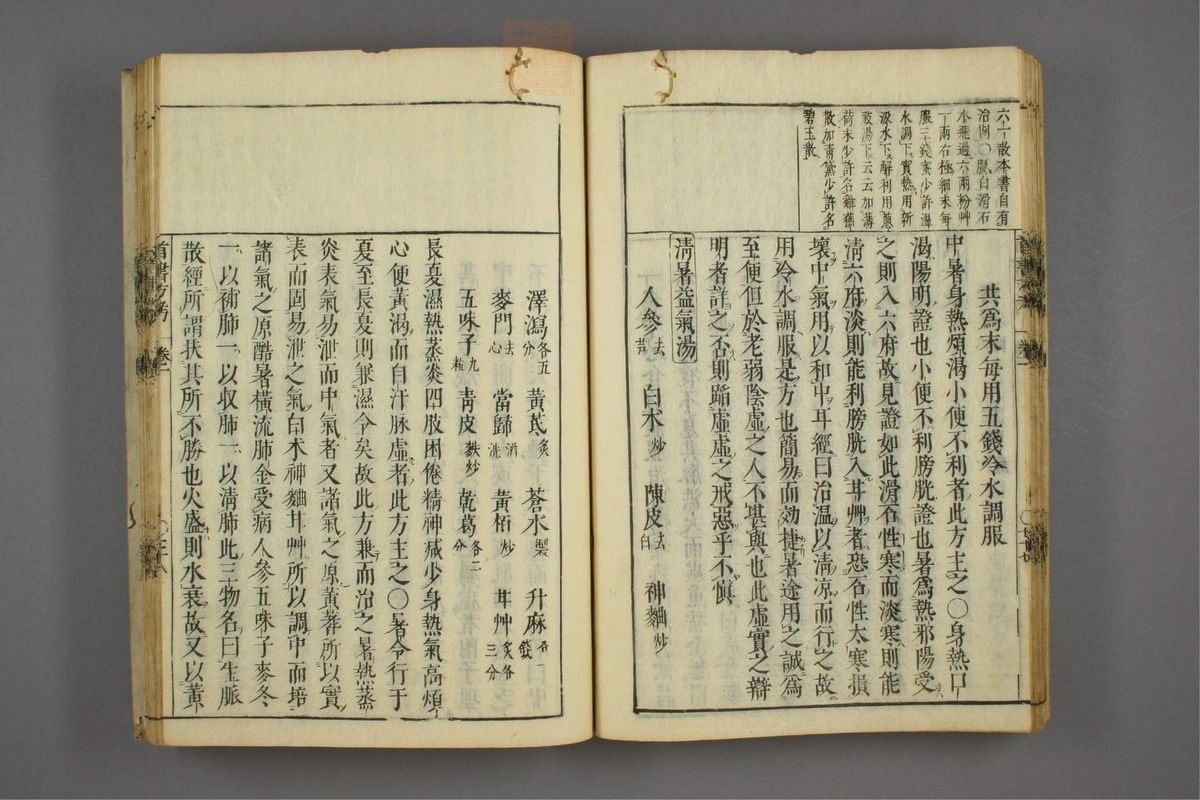 六一散本書自有
治例〇臘白滑石
水飛過六兩粉艸
一兩右極細末每
服三錢蜜少許溫
水調下實熱用新
汲水下解利用葱
豉湯下云云加薄
荷末少許名雞蘇
散加青黛少許名
碧玉散
共爲末每用五錢冷水調服
中暑身熱煩渴小便不利者此方主之〇身熱口
渴陽明證也小便不利膀胱證也暑爲熱邪陽受
之則入六府故見證如此滑石性寒而淡寒則能
清六府淡則能利膀胱入甘艸者恐石性太寒損
壞中氣用以和中耳經曰治溫以清凉而行之故
用冷水調服是方也簡易而効捷暑途用之誠爲
至便但於老弱陰虛之人不堪與也此虛實之辯
明者詳之否則蹈虛虛之戒惡乎不愼
清暑益氣湯
人參去芦 白朮炒 陳皮去白 神麯炒
澤瀉各五分 黃芪炙 蒼朮製 升麻各一錢
麥門去心 當歸酒洗 黃栢炒 甘艸炙各三分
五味子九粒 青皮麩炒 乾葛各二分
長夏濕熱蒸炎四肢困倦精神減少身熱氣高煩
心便黃渴而自汗脉虛者此方主之〇暑令行于
夏至長夏則兼濕令矣故此方兼而治之暑熱蒸
炎表氣易泄而中氣者又諸氣之原黃蓍所以實
表而固易泄之氣白朮神麯甘艸所以調中而培
諸氣之原酷暑橫流肺金受病人參五味子麥冬
一以補肺一以收肺一以清肺此三物名曰生脉
散經所謂扶其所不勝也火盛則水衰故又以黃
首書方考 卷二